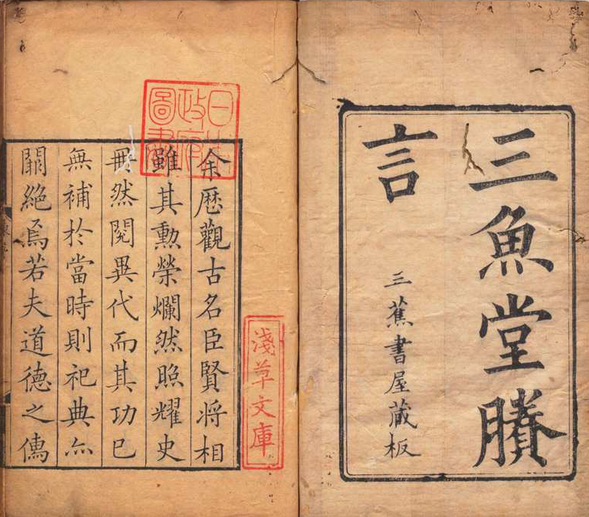 三魚堂賸
言
三蕉書屋藏板
日本政府圖書
淺草文庫
余歷觀古名臣賢將相
雖其勳榮爛然照耀史
冊然閱異代而其功已
無補於當時則祀典亦
闕絶焉若夫道德之儒